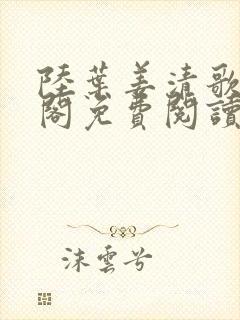 陸葉姜清歌
閣免費閱讀
沫雲兮